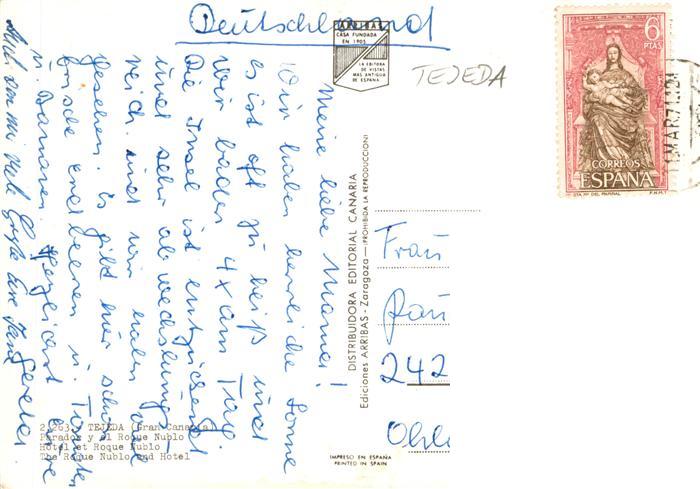 Deutschland
ARRIBAS
CASA FUNDADA
EN 1905
LA EDITORA
DE VISTAS
MAS ANTIGUA
DE ESPAÑA
TEJEDA
6
PTAS
CORREOS
ESPAÑA
STA. Mª DEL PARRAL F.N.M.T.
MAR 71
Meine liebe Mama!
Wir haben herrliche Sonne
es ist oft zu heiß und
wir baden 4x am Tag.
Die Insel ist entzückend
und sehr abwechslungs
reich und wir haben viel
gesehen. Es gibt hier schon
frische Erdbeeren u. Tomaten
u. Bananen. Herzlichst Deine
Gerda
Auch von mir viele Grüße
DISTRIBUIDORA EDITORIAL CANARIA
Ediciones ARRIBAS - Zaragoza - (PROHIBIDA LA REPRODUCCION)
Frau
242
TEJEDA (Gran Canaria)
Parador y el Roque Nublo
Hotel et Roque Nublo
The Roque Nublo and Hotel
IMPRESO EN ESPAÑA
PRINTED IN SPAIN